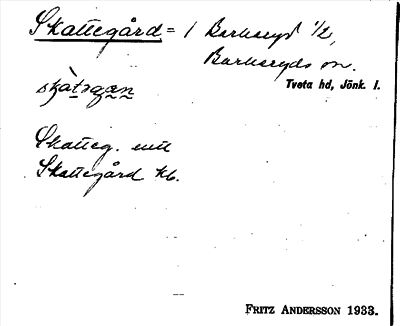 Skattegård = 1 Barkeryd ½,
Barkeryds sn.
Tveta hd, Jönk. l.
skàtəgan
Skatteg. enl
Skattegård kb.
FRITZ ANDERSSON 1933.